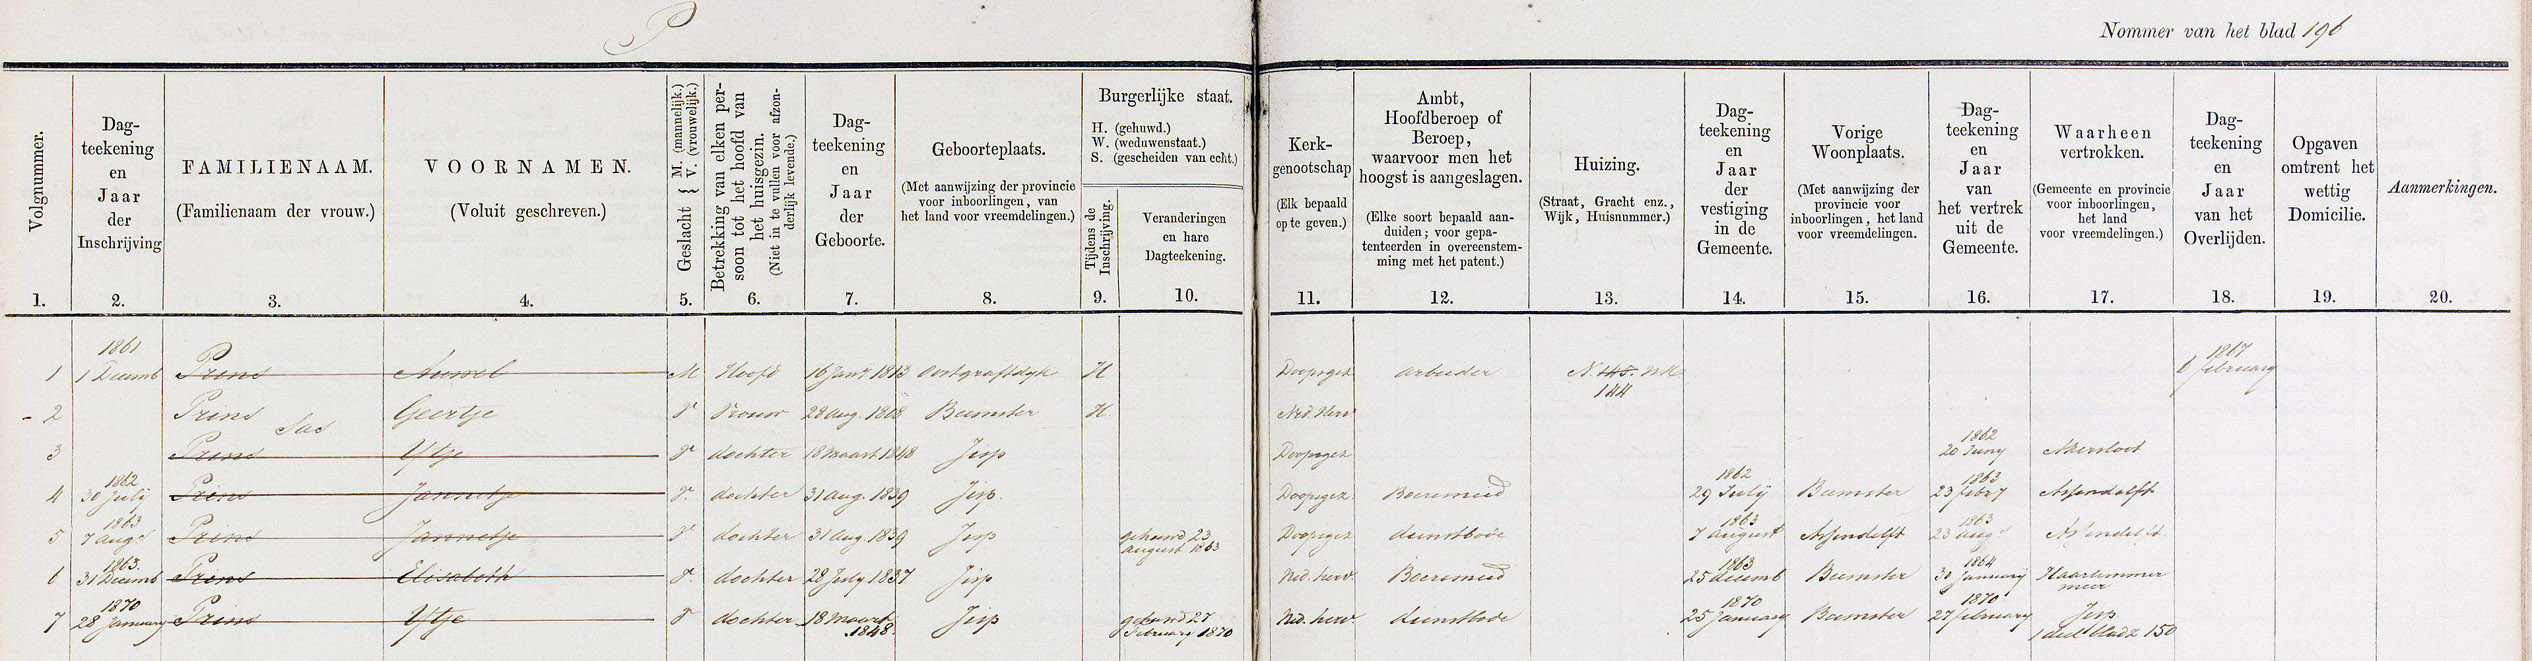 P
Nommer van het blad 196
Volgnummer.
1.
Dag-
teekening
en
Jaar
der
Inschrijving
2.
FAMILIENAAM.
(Familienaam der vrouw.)
3.
VOORNAMEN.
(Voluit geschreven.)
4.
Geslacht { M. (mannelijk.)
V. (vrouwelijk.)
5.
Betrekking van elken per-
soon tot het hoofd van
het huisgezin.
(Niet in te vullen voor afzon-
derlijk levende.)
6.
Dag-
teekening
en
Jaar
der
Geboorte.
7.
Geboorteplaats.
(Met aanwijzing der provincie
voor inboorlingen, van
het land voor vreemdelingen.)
8.
Burgerlijke staat.
H. (gehuwd.)
W. (weduwenstaat.)
S. (gescheiden van echt.)
Tijdens de
Inschrijving.
9.
Veranderingen
en hare
Dagteekening.
10.
Kerk-
genootschap
(Elk bepaald
op te geven.)
11.
Ambt,
Hoofdberoep of
Beroep,
waarvoor men het
hoogst is aangeslagen.
(Elke soort bepaald aan-
duiden; voor gepa-
tenteerden in overeenstem-
ming met het patent.)
12.
Huizing.
(Straat, Gracht enz.,
Wijk, Huisnummer.)
13.
Dag-
teekening
en
Jaar
der
vestiging
in de
Gemeente.
14.
Vorige
Woonplaats.
(Met aanwijzing der
provincie voor
inboorlingen, het land
voor vreemdelingen.
15.
Dag-
teekening
en
Jaar
van
het vertrek
uit de
Gemeente.
16.
Waarheen
vertrokken.
(Gemeente en provincie
voor inboorlingen,
het land
voor vreemdelingen.)
17.
Dag-
teekening
en
Jaar
van het
Overlijden.
18.
Opgaven
omtrent het
wettig
Domicilie.
19.
Aanmerkingen.
20.
1861 1867
1 1 Decemb Prins M Hoofd 16 Jan 1813 Oostgraftdyk H Doopsgez arbeider N. 145. 6 february
144
- 2 Prins Geertje V vrouw 28 aug. 1808 Beemster H Ned. Herv
Sas
1862
3 Prins Yftje V dochter 18 maart 1848 Jisp Doopsgez 20 Juny Akersloot
1862 1862 1863
4 30 July Prins Jannetje V. dochter 31 aug. 1839 Jisp. Doopsgez. Boeremeid 29 July Beemster 23 feb Assendelft
1863 1863 1863
5 7 aug Prins Jannetje V dochter 31 aug. 1839 Jisp gehuwd 23 Doopsgez dienstbode 7 august Assendelft 23 aug Assendelft
august 1863
1863. 1863 1864
6 31 Decemb Prins Elisabeth V. dochter 28 July 1837 Jisp Ned. herv. Boeremeid 25 decemb Beemster 30 January Haarlemmer
meer
1870 1870 1870
7 28 January Prins Yftje V dochter 18 maart Jisp gehuwd 27 Ned. herv. dienstbode 25 January Beemster 27 february Jisp
1848. February 1870 1 deel bladz 150